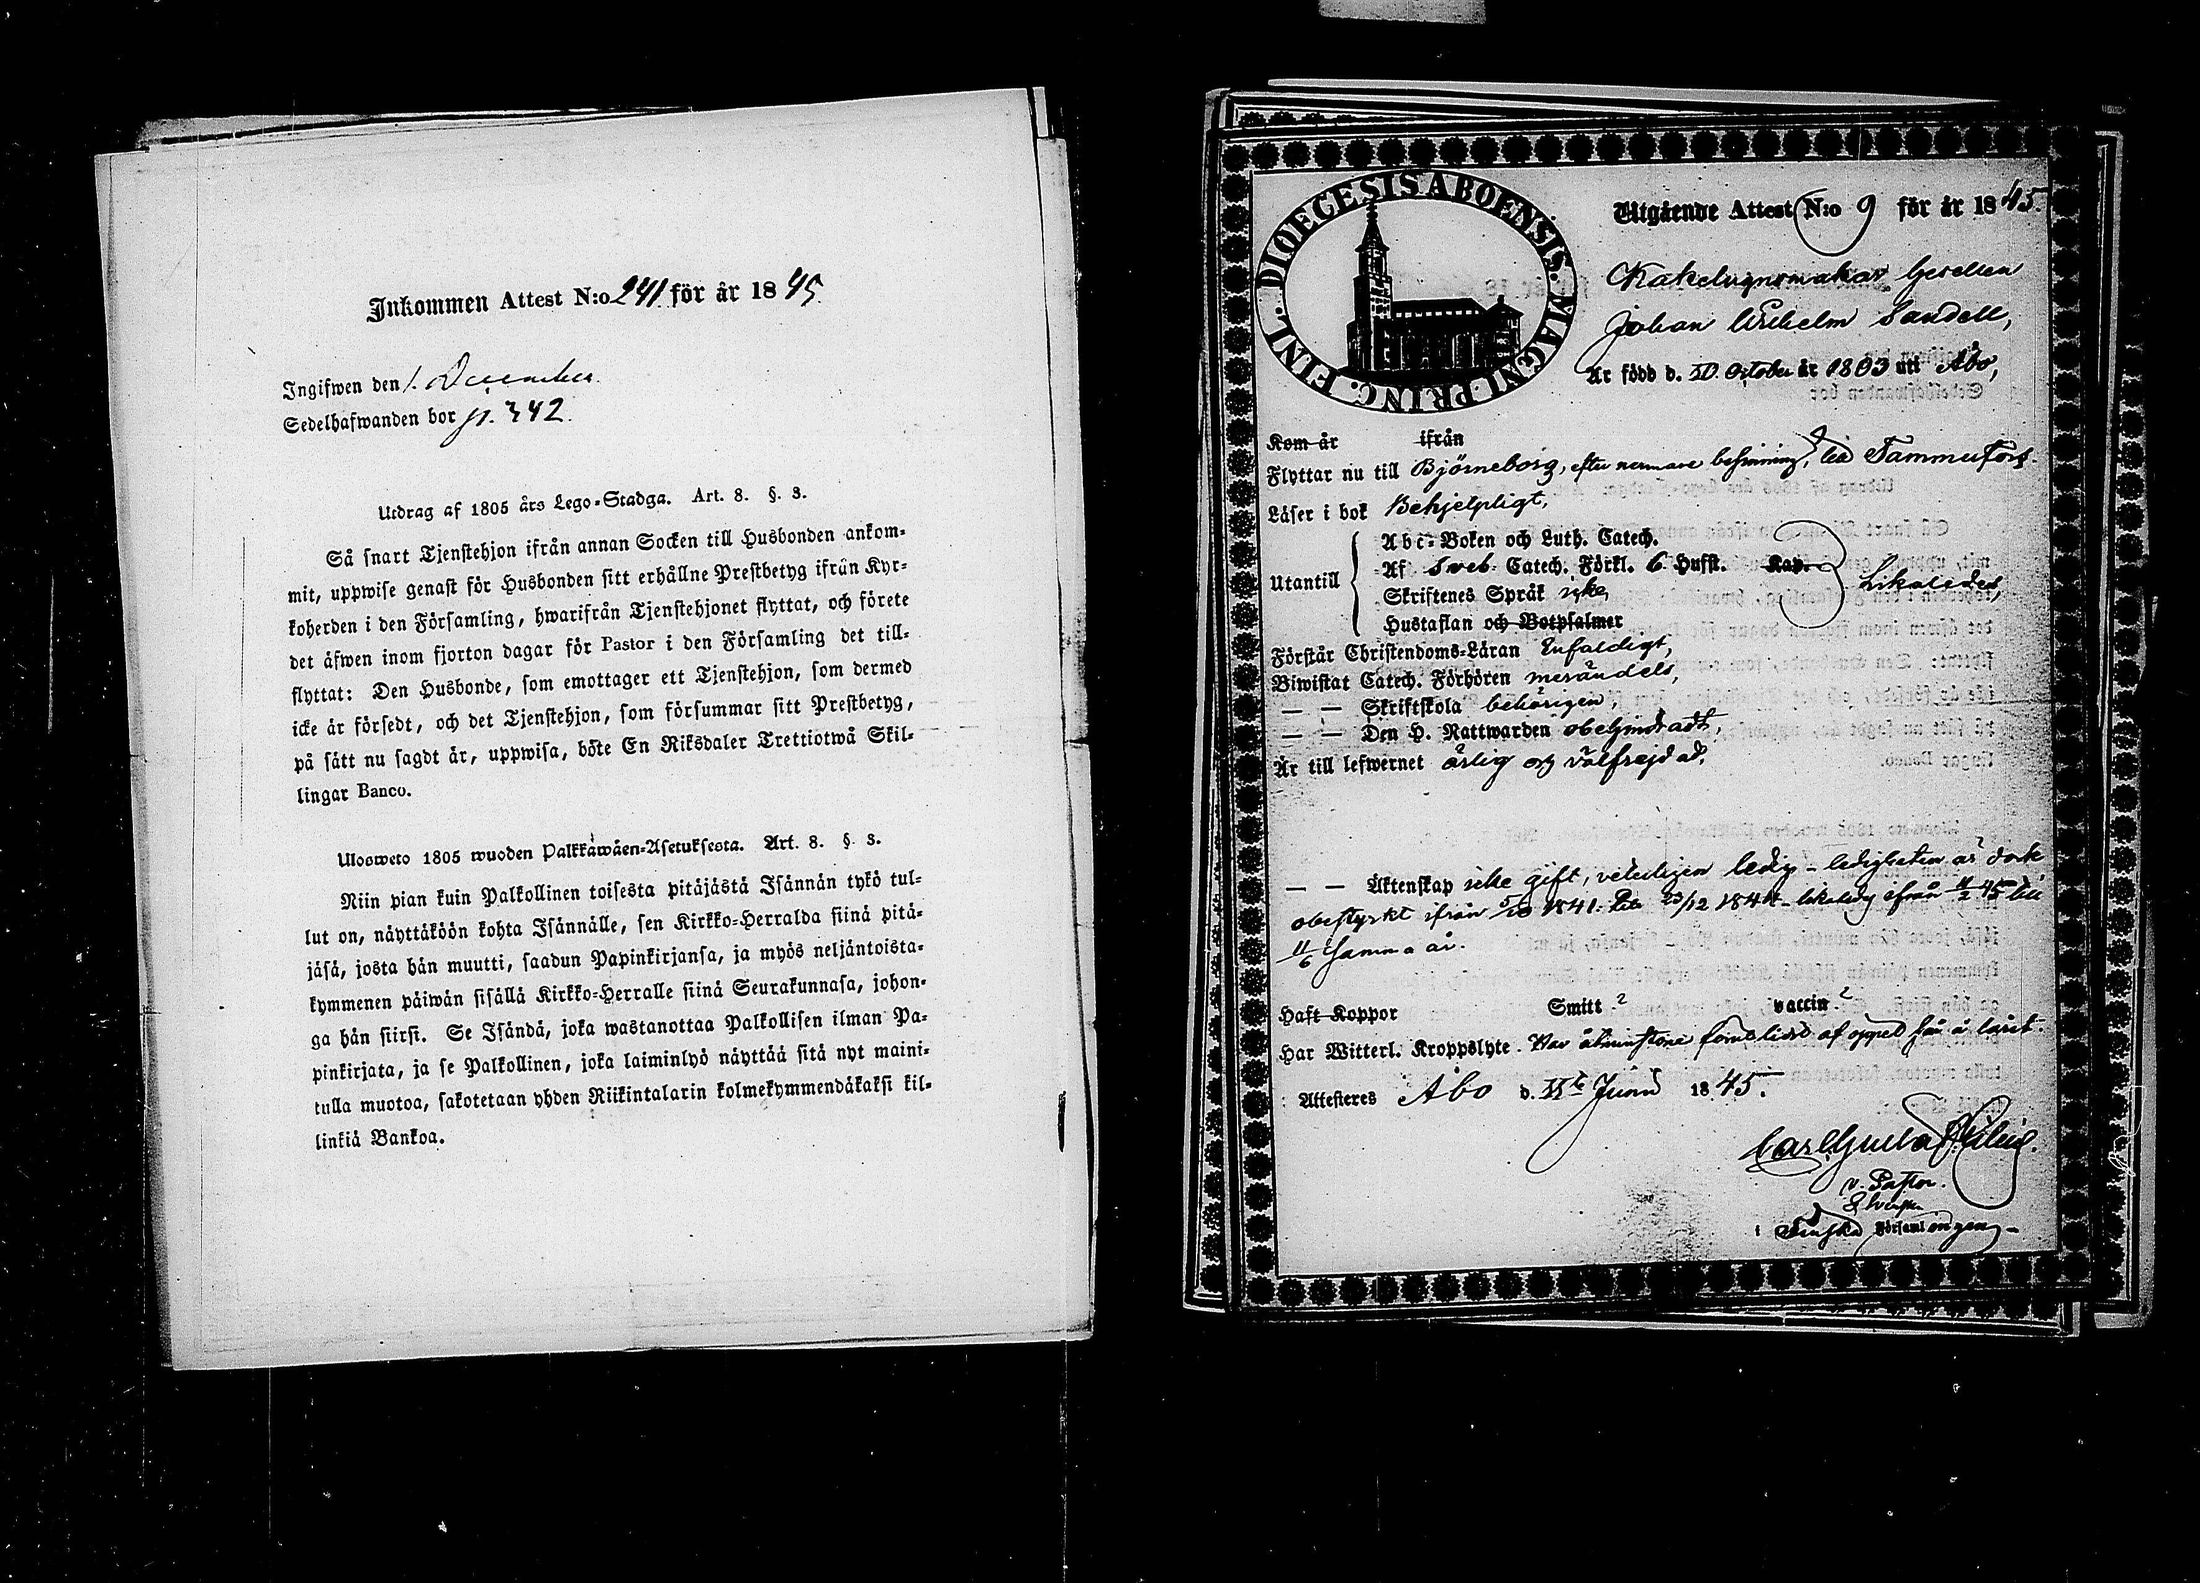 Inkommen Attest N:o 241 för år 1845
Ingifwen den 1. December
Sedelhafwanden bor 342.
Utdrag af 1805 års Lego-Stadga. Art. 8. §. 3.
Så snart Tjenstehjon ifrån annan Socken till Husbonden ankom-
mit, uppwise genast för Husbonden sitt erhållne Prestbetyg ifrån Kyr-
koherden i den Församling, hwarifrån Tjenstehjonet flyttat, och förete
det äfwen inom fjorton dagar för Pastor i den Församling det till-
flyttat: Den Husbonde, som emottager ett Tjenstehjon, som dermed
icke är försedt, och det Tjenstehjon, som försummar sitt Prestbetyg,
på sätt nu sagdt är, uppwisa, böte En Riksdaler Trettiotwå Skil-
lingar Banco.
Ulosweto 1805 wuoden Palkkawäen-Asetuksesta. Art. 8. §. 3.
Niin pian kuin Palkollinen toisesta pitäjästä Isännän tykö tul-
lut on, näyttäköön kohta Isännälle, sen Kirkko-Herralda siinä pitä-
jäsä, josta hän muutti, saadun Papinkirjansa, ja myös neljäntoista-
kymmenen päiwän sisällä Kirkko-Herralle siinä Seurakunnasa, johon-
ga hän siirsi. Se Isändä, joka wastanottaa Palkollisen ilman Pa-
pinkirjata, ja se Palkollinen, joka laiminlyö näyttää sitä nyt maini-
tulla muotoa, sakotetaan yhden Riikintalarin kolmekymmendäkaksi kil-
linkiä Bankoa.
FINL. DIOECESIS ABOENSIS. MAGNI PRINC.
Utgående Attest N:o 9 för år 1845.
Kakelugnsmakar Gesellen
Johan Wilhelm Sandell,
Är född d. October år 1803 uti Åbo,
Kom år ifrån
Flyttar nu till Björneborg, efter närmare besinning, till Tammerfors
Läser i bok Behjelpligt,
Utantill
Abc-Boken och Luth. Catech.
Af Sveb. Catech. Förkl. 6 Hufst. Kap.
Skriftenes Språk icke,
Hustaflan och Botpsalmer
Likaledes,
Förstår Christendoms-Läran Enfaldigt,
Biwistat Catech. Förhören merändels,
— — Skriftskola behörigen,
— — Den H. Nattwarden obehindradt,
Är till lefwernet ärlig och välfrejdad.
— — Äktenskap icke gift, veterligen ledig - ledigheten är dock
obestyrkt ifrån 5/10 1841 till 23/12 1844 likaledes ifrån 11/2 45 till
11/6 samma år.
Haft Koppor Smitt ? vaccin ?
Har Witterl. Kroppslyte. Har åtminstone af oppel
Attesteres Åbo d. Junii 1845.
Carl Gustaf
v. Pastor.
i Finska Församlingen